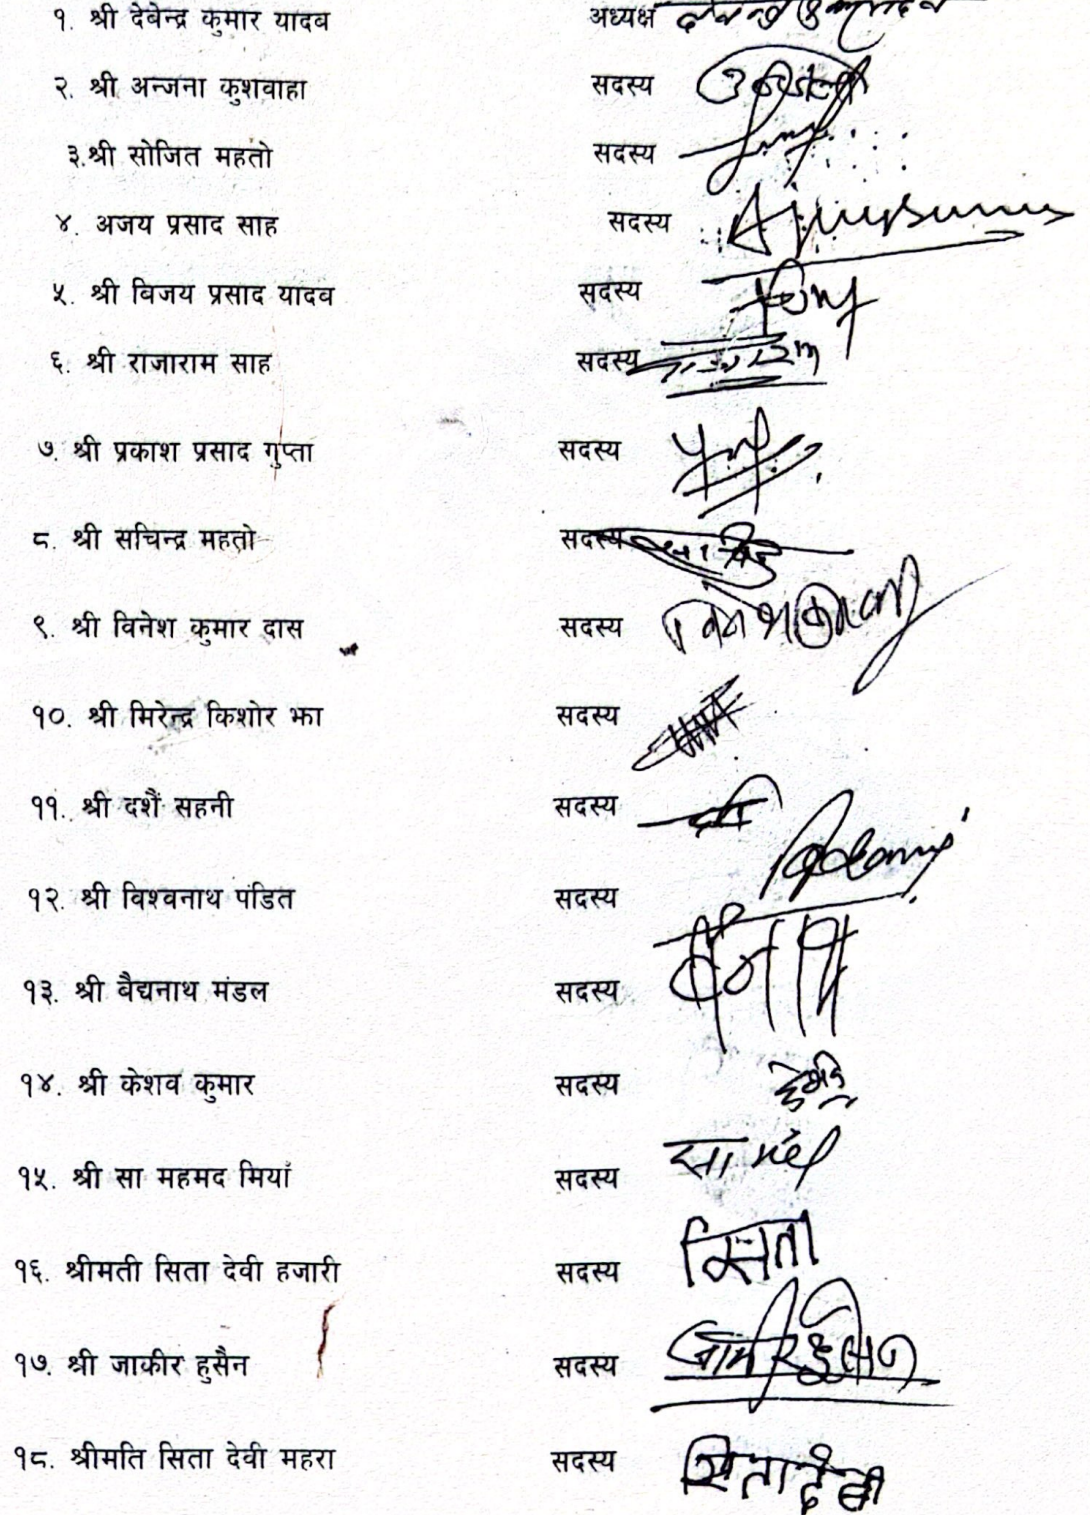 १. श्री देबेन्द्र कुमार यादब अध्यक्ष
२. श्री अन्जना कुशवाहा सदस्य
३.श्री सोजित महतो सदस्य
४. अजय प्रसाद साह सदस्य
५. श्री बिजय प्रसाद यादव सदस्य
६. श्री राजाराम साह सदस्य
७. श्री प्रकाश प्रसाद गुप्ता सदस्य
८. श्री सचिन्द्र महतो सदस्य
९. श्री विनेश कुमार दास सदस्य
१०. श्री मिरेन्द्र किशोर झा सदस्य
११. श्री दशैं सहनी सदस्य
१२. श्री विश्वनाथ पंडित सदस्य
१३. श्री बैद्यनाथ मंडल सदस्य
१४. श्री केशव कुमार सदस्य
१५. श्री सा महमद मियाँ सदस्य
१६. श्रीमती सिता देवी हजारी सदस्य सिता
१७. श्री जाकीर हुसैन सदस्य
१८. श्रीमति सिता देवी महरा सदस्य सिता देबी